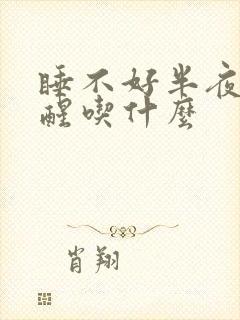 睡不好半夜
醒喫什麽
肖翔